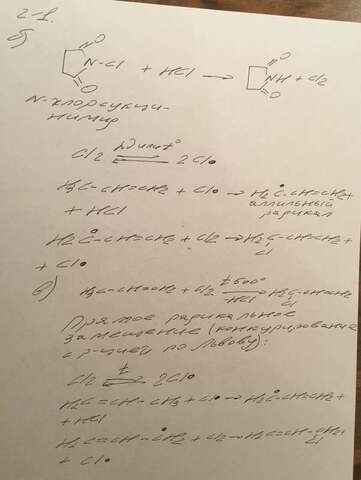 2-1.
б)
N-Cl + HCl → NH + Cl2
N-хлорсукци-
нимид
Cl2 ⇌ 2Cl•
H3C-CH=CH2 + Cl• → H2Ċ-CH=CH2 +
+ HCl аллильный
радикал
H2Ċ-CH=CH2 + Cl2 → H2C-CH=CH2 +
Cl
+ Cl•
в)
H3C-CH=CH2 + Cl2 → H2C-CH=CH2
t 500°
-HCl
Cl
Прямое радикальное
замещение (конкурирование
с р-цией по Львову):
Cl2 ⇌ 2Cl•
t
H2C=CH-CH3 + Cl• → H2Ċ-CH=CH2 +
+ HCl
H2C=CH-ĊH2 + Cl2 → H2C=CH-CH2 +
Cl
+ Cl•